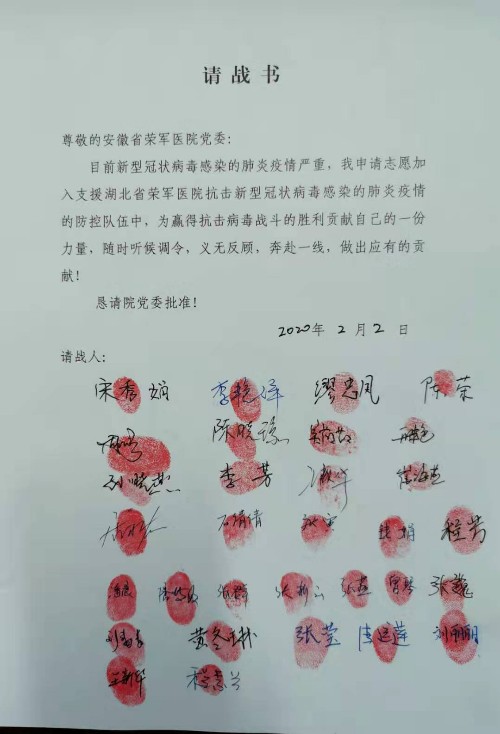 请战书
尊敬的安徽省荣军医院党委：
目前新型冠状病毒感染的肺炎疫情严重，我申请志愿加
入支援湖北省荣军医院抗击新型冠状病毒感染的肺炎疫情
的防控队伍中，为赢得抗击病毒战斗的胜利贡献自己的一份
力量，随时听候调令，义无反顾，奔赴一线，做出应有的贡
献！
恳请院党委批准！
2020年 2月2日
请战人：
宋秀娟 李艳萍 缪志凤 陈荣
陈晓璇
孙晓燕 李芳
石倩倩 钱娟 程芳
张燕 张巍
黄冬梅 张莹 唐运莲 刘丽丽
程慧兰